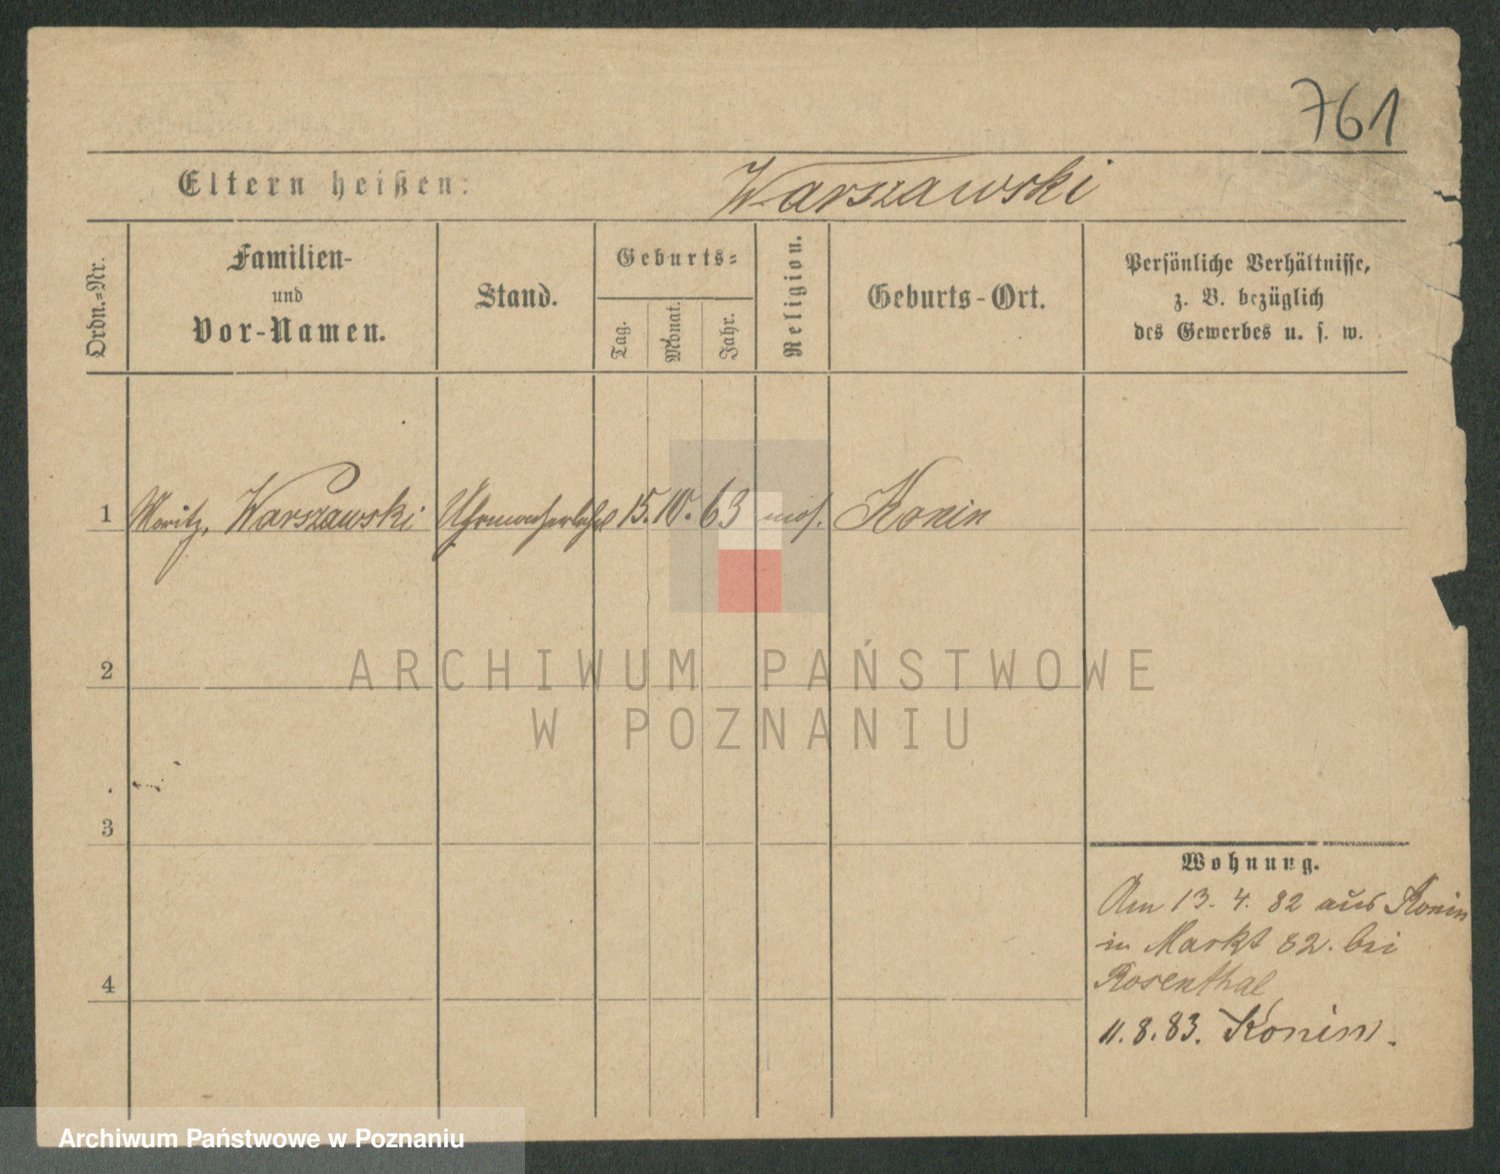 761
Eltern heißen: Warszawski
Ordn.=Nr.
Familien-
und
Vor-Namen.
Stand.
Geburts=
Tag.
Monat.
Jahr.
Religion.
Geburts-Ort.
Persönliche Verhältnisse,
z. B. bezüglich
des Gewerbes u. s. w.
1 Moritz, Warszawski Uhrmacherlehrl 15. 10. 63 mos. Konin
ARCHIWUM PAŃSTWOWE
W POZNANIU
2
3
4
Wohnung.
Am 13. 4. 82 aus Konin
in Markt 82. bei
Rosenthal
11. 8. 83. Konin.
Archiwum Państwowe w Poznaniu